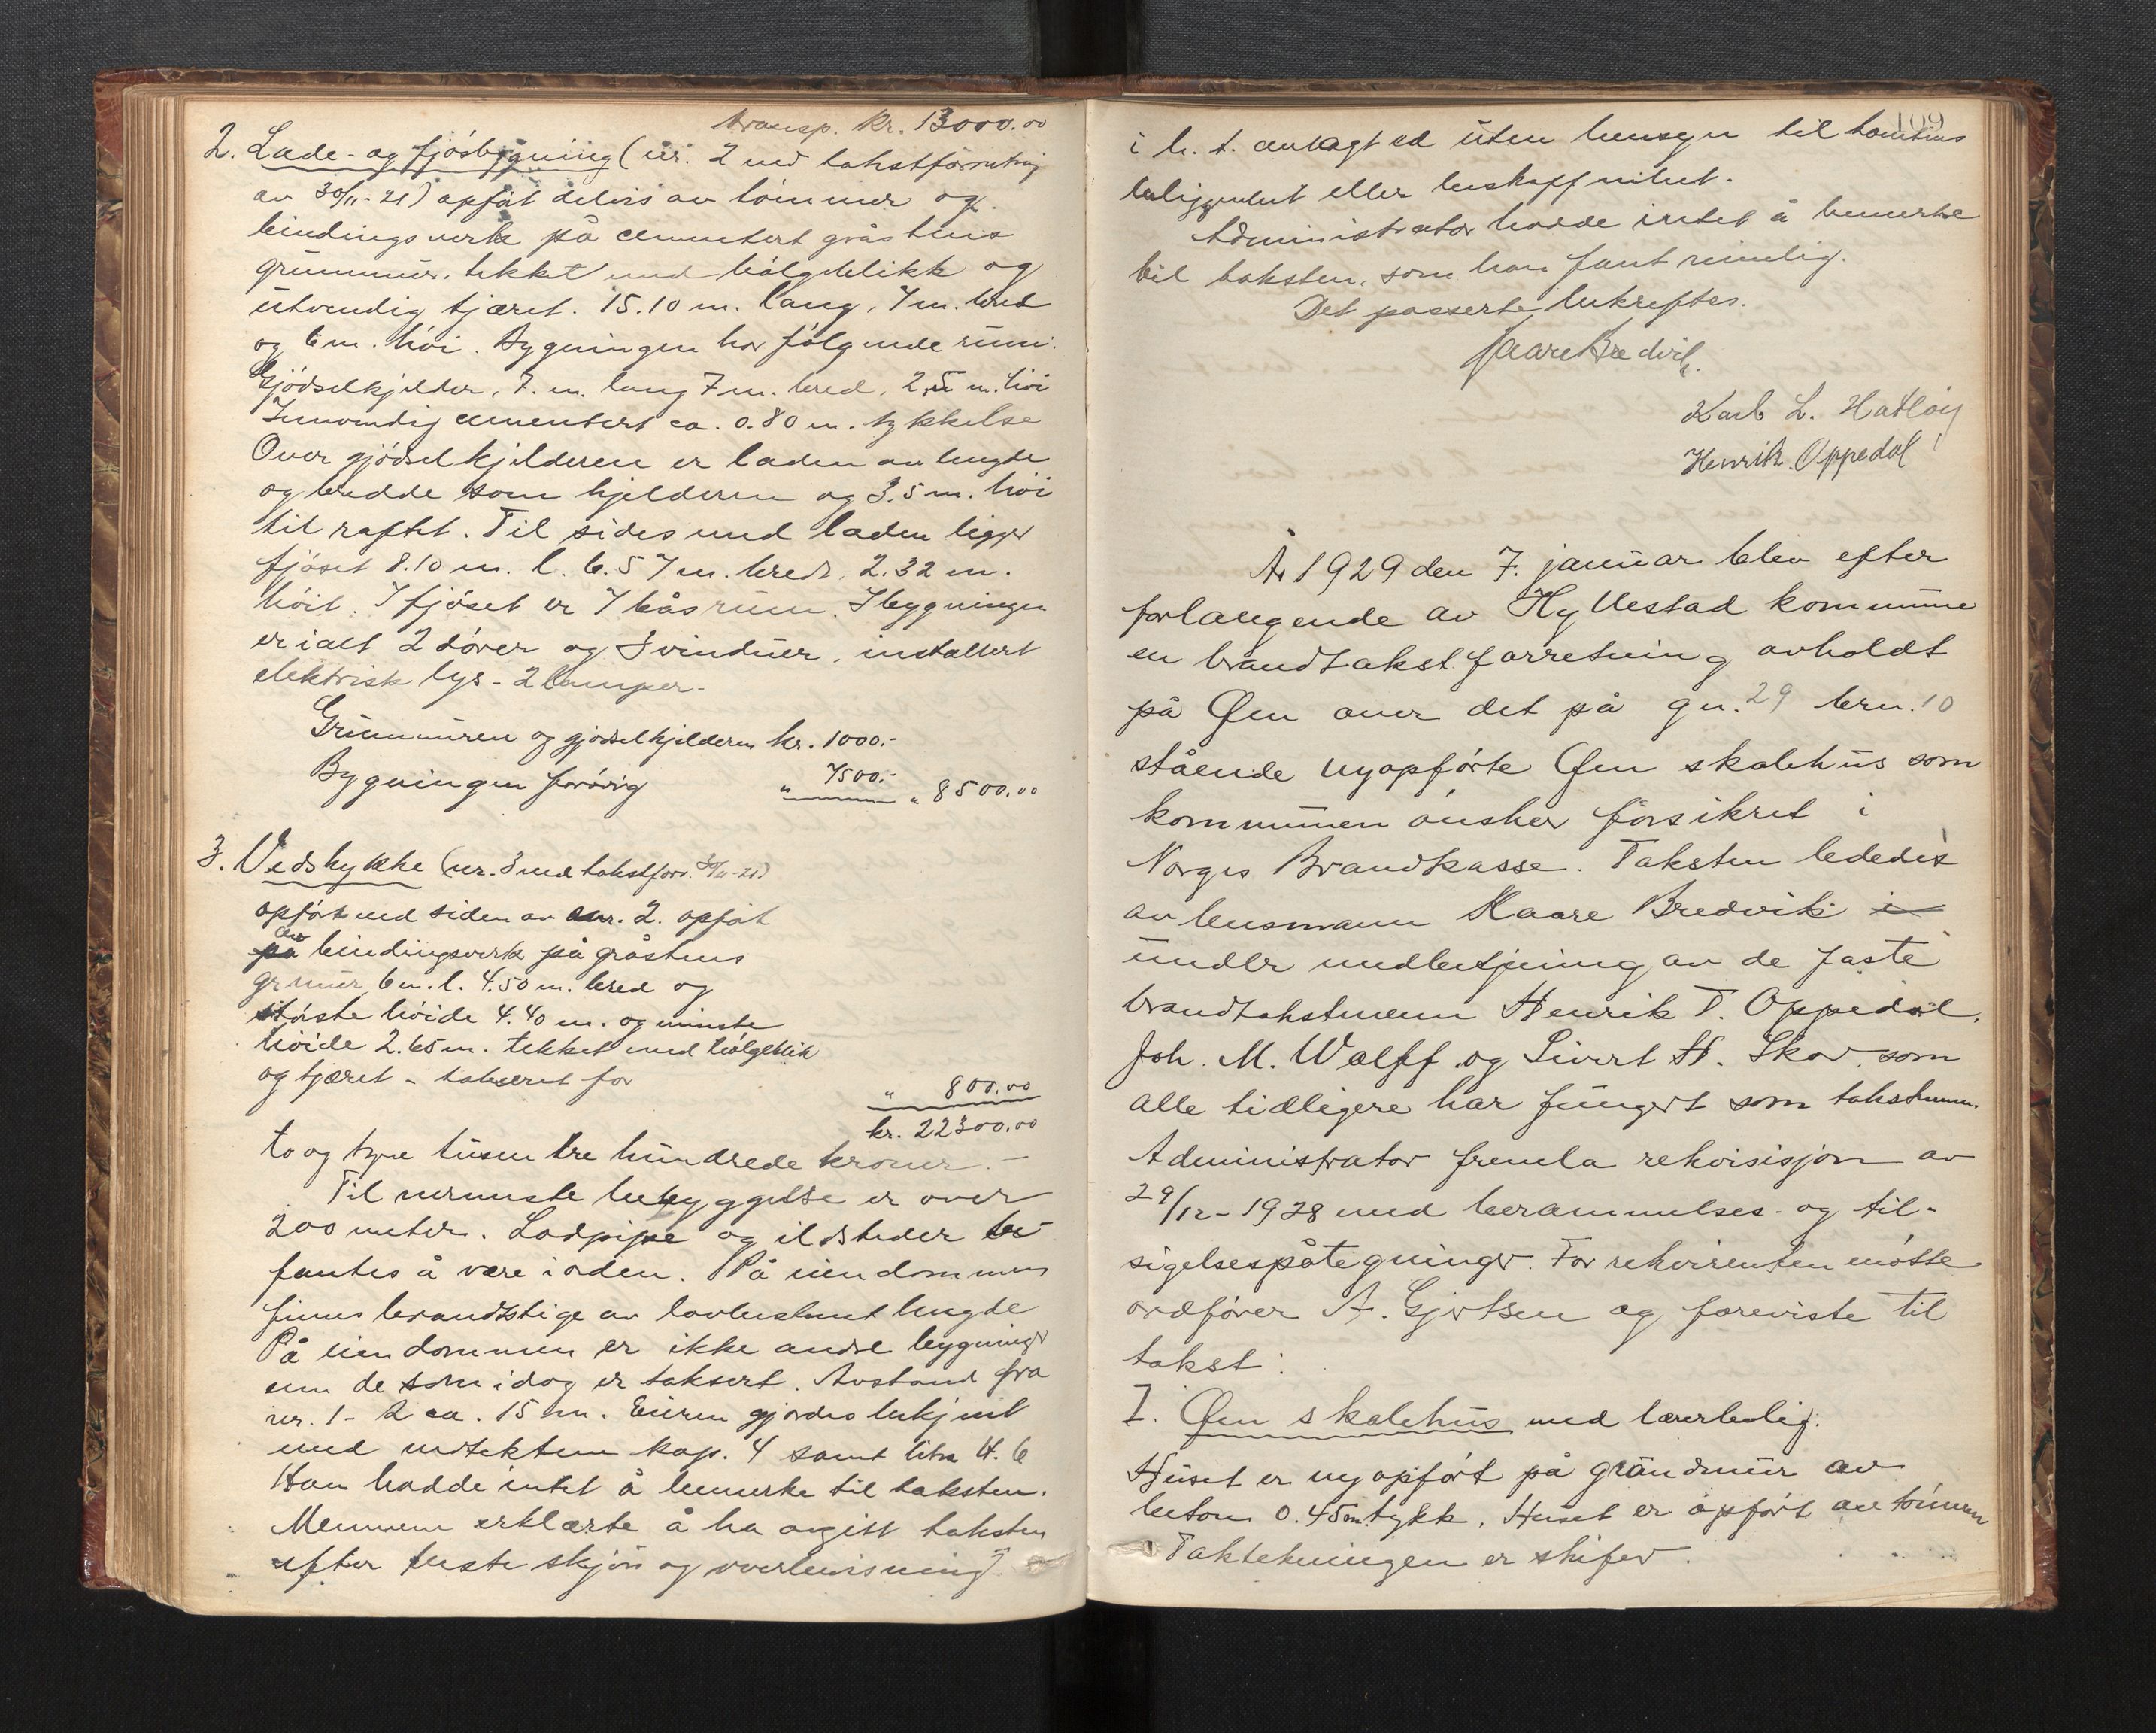 transp. kr. 13000.00
2. Lade- og fjósbygning (nr. 2 ved takstforretning
av 30/11-21) opfört delvis av tömmer og
bindingsverk på cementert gråstens
grunnmur, tekket med bölgeblikk og
utvendig tjæret. 15.10 m. lang, 7 m. bred
og 6 m. höi. Bygningen har fölgende rum:
Gjödselkjelder, 7. m. lang 7 m. bred, 2,5 m. höi
Innvendig cementert ca. 0.80 m. tykkelse
Over gjödselkjelderen er laden av lengde
og bredde som kjelderen og 3.5 m. höi
til raftet. Til sides med laden ligger
fjöset 8.10 m. l. 6.57 m. bredt, 2.32 m.
höit. I fjöset er 7 båsrum. I bygningen
er ialt 2 dörer og 3 vinduer, installert
elektrisk lys - 2 lamper.
Grunnmuren og gjödselkjelderen kr. 1000.-
Bygningen forövrig " 7500.- " 8500.00
3. Vedskykke (nr. 3 ved takstforr. 30/11-21)
opfört ved siden av nr. 2. opfört
på av bindingsverk på gråstens
grmur, 6 m. l. 4.50 m. bred og
störste höide 4.40 m. og minste
höide 2.65 m. tekket med bölgeblik
og tjæret - taksert for
" 800.00
kr. 22300.00
to og tyve tusen tre hundrede kroner.-
Til nermeste bebyggelse er over
200 meter. Lodpipe og ildsteder be-
fantes å være i orden. På eiendommen
finnes brandstige av lovbestemt lengde
På eiendommen er ikke andre bygninger
enn de som idag er taksert. Avstand fra
nr. 1 - 2 ca. 15 m. Eieren gjordes bekjent
med vedtektene kap. 4 samt litra H. 6
Han hadde intet å bemerke til taksten.
Mennene erklærte å ha avgitt taksten
efter beste skjön og overbevisning
109
i h. t. avlagt ed uten hensyn til tomtens
beliggenhet eller beskaffenhet.
Administrator hadde intet å bemerke
til taksten, som han fant rimelig.
Det passerte bekreftes.
Kaare Bredvik.
Karl L. Hatlöy
Henrik Oppedal
År 1929 den 7. januar blev efter
forlangende av Hyllestad kommune
en brandtakstforretning avholdt
på Øen over det på gn. 29 brn. 10
stående nyopförte Øen skolehus som
kommunen önsker forsikret i
Norges Brandkasse. Taksten lededes
av lensmann Kaare Bredvik i
under medbetjening av de faste
brandtakstmenn Henrik T. Oppedal,
Joh. M. Wolff og Sivert H. Skor som
alle tidligere har fungert som takstmenn.
Administrator fremla rekvisisjon av
29/12-1928 med berammelses- og til-
sigelsespåtegninger. For rekvirenten mötte
ordförer A. Gjertsen og foreviste til
takst:
I. Øen skolehus med lærerbolig.
Huset er nyopfört på grundmur av
beton 0.45 m tykk. Huset er opfört av tömmer
Taktekningen er skifer.